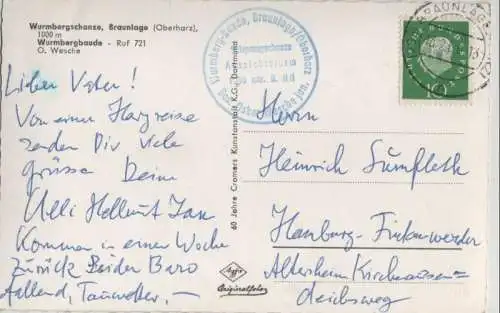 Wurmbergschanze, Braunlage (Oberharz),
1000 m
Wurmbergbaude - Ruf 721
O. Wesche
Wurmberg-Baude, Braunlage/Oberharz
Bes.: Oskar Wesche jun.
BRAUNLAGE
DEUTSCHE BUNDESPOST
10
Lieber Vater!
Von einer Harzreise
senden Dir viele
Grüsse Deine
Ulli Hellmut Jan
Kommen in einer Woche
zurück. Leider
Tauwetter,-
60 Jahre Cramers Kunstanstalt K.G., Dortmund
Agfa
Originalfoto
Herrn
Heinrich Sumfleth
Hamburg-Finkenwerder
Altersheim
deichsweg